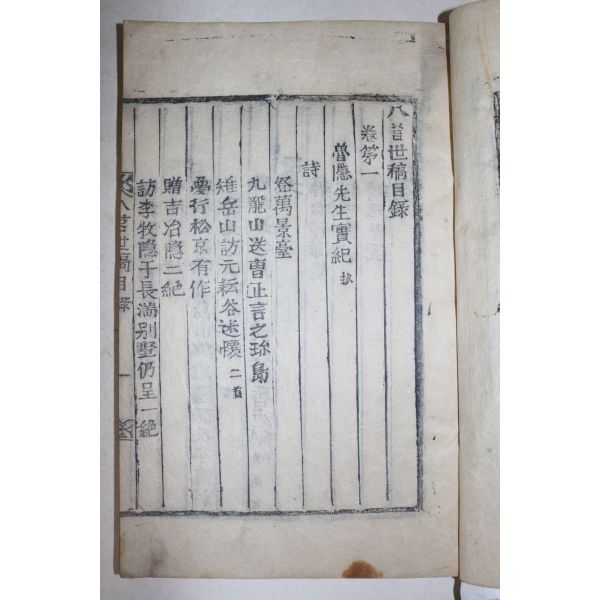 八莒世稿目錄
卷第一
魯隱先生實紀 抄
詩
登萬景臺
九龍山送曺正言之珍島
雉岳山訪元耘谷述懷 二首
憂行松京有作
贈吉冶隱二絶
訪李牧隱于長湍別墅仍呈一絶
八莒世稿目錄 一